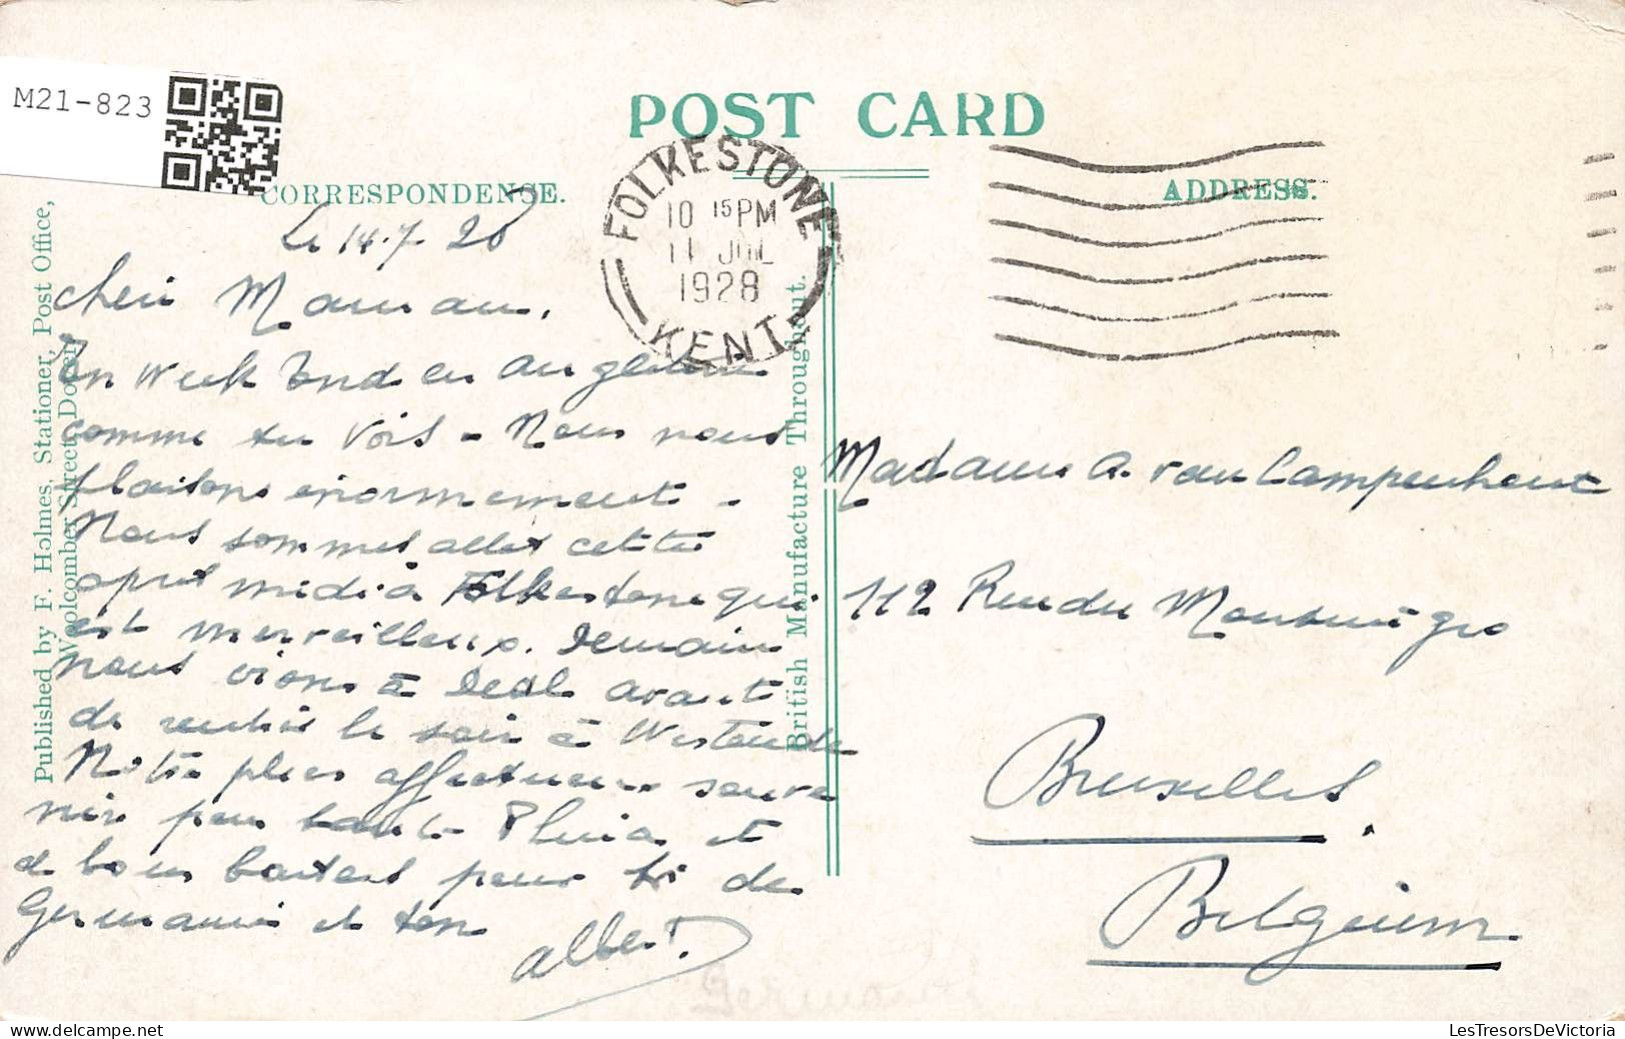 M21-823
POST CARD
CORRESPONDENCE.
ADDRESS.
FOLKESTONE
10 15PM
11 JUL
1928
KENT
Published by F. Holmes, Stationer, Post Office,
Woolcomber Street, Dover.
British Manufacture Throughout.
Le 14.7.28
Cheri Maman,
En Week End en Angleterre
comme tu vois - Nous nous
plaisons enormement -
Nous sommes allés cette
apres midi à Folkestone qui
est merveilleux. Demain
nous irons à Deal avant
de rentrer le soir à Westende
Notre plus affectueux souve
nir pour tante Pluia et
de bons baisers pour toi de
Germaine et ton
Albert.
Madame A. van Campenhout
112 Rue du
Bruxelles.
Belgium
Germaine
LesTresorsDeVictoria